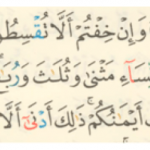 وَإِنْ خِفْتُمْ أَلَّا تُقْسِطُوا
ٱلنِّسَآءِ مَثْنَىٰ وَثُلَٰثَ وَرُبَٰعَ
أَيْمَٰنُكُمْ ۚ ذَٰلِكَ أَدْنَىٰٓ أَلَّا